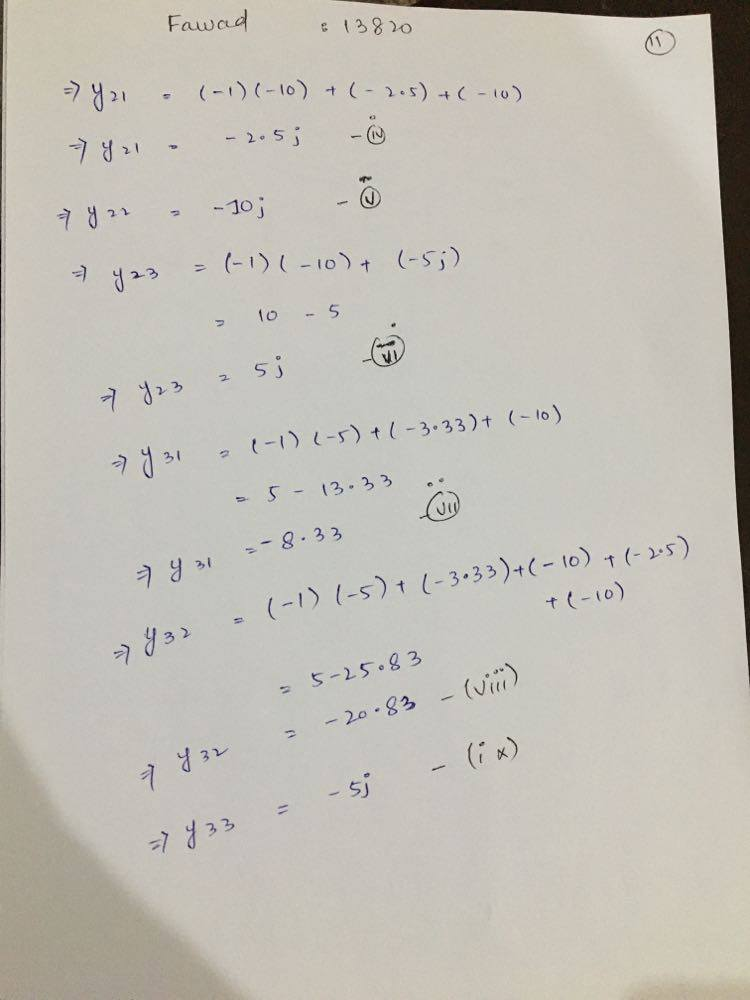 Fawad : 13820
11
⇒ y21 = (-1)(-10) + (-2.5) + (-10)
⇒ y21 = -2.5j - iv
⇒ y22 = -10j - v
⇒ y23 = (-1)(-10) + (-5j)
= 10 - 5
⇒ y23 = 5j - vi
⇒ y31 = (-1)(-5) + (-3.33) + (-10)
= 5 - 13.33
⇒ y31 = -8.33 - vii
⇒ y32 = (-1)(-5) + (-3.33) + (-10) + (-2.5)
+ (-10)
= 5 - 25.83
⇒ y32 = -20.83 - (viii)
⇒ y33 = -5j - (ix)